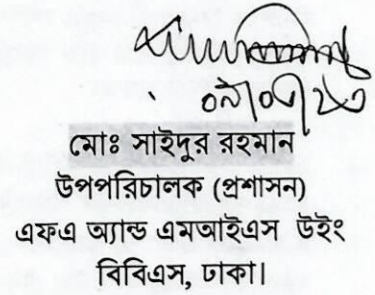 মোঃ সাইদুর রহমান
উপপরিচালক (প্রশাসন)
এফএ অ্যান্ড এমআইএস উইং
বিবিএস, ঢাকা।